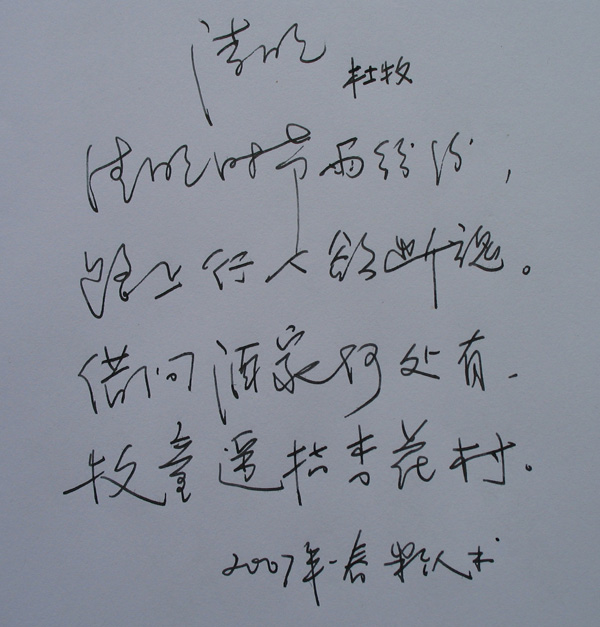 清明
杜牧
清明时节雨纷纷，
路上行人欲断魂。
借问酒家何处有，
牧童遥指杏花村。
2007年春